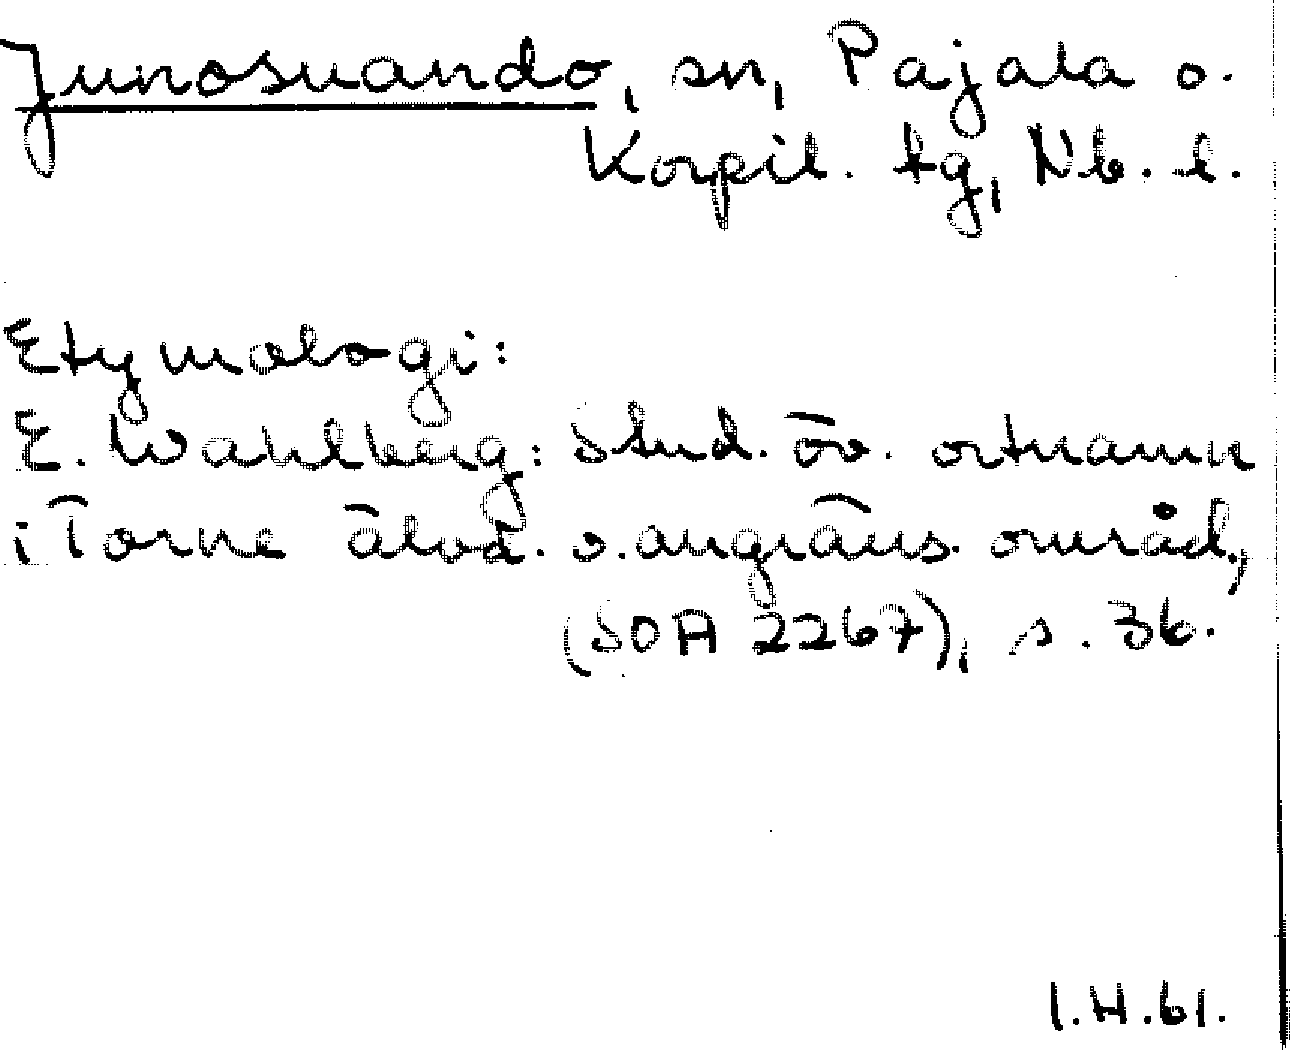 Junosuando, sn, Pajala o.
Korpil. tg, Nb. l.
Etymologi:
E. Wahlberg: Stud. öv. ortnamn
i Torne älvd. o. angräns. område,
(SOA 2267), s. 36.
I.H.61.